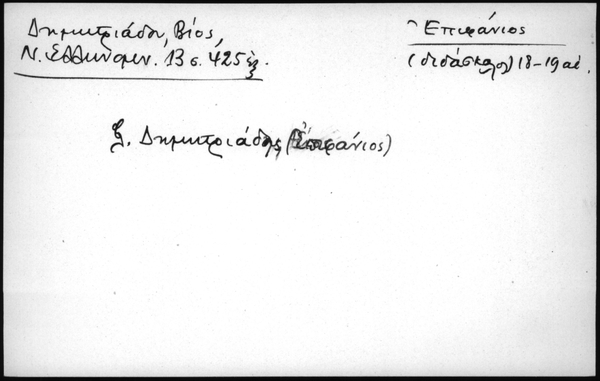 Δημητριάδου, Βίος,
Ν. Ἑλληνομν. 13 σ. 425 ἑξ.
Ἐπιφάνιος
(διδάσκαλος) 18-19 αἰ.
Δημητριάδης (Ἐπιφάνιος)